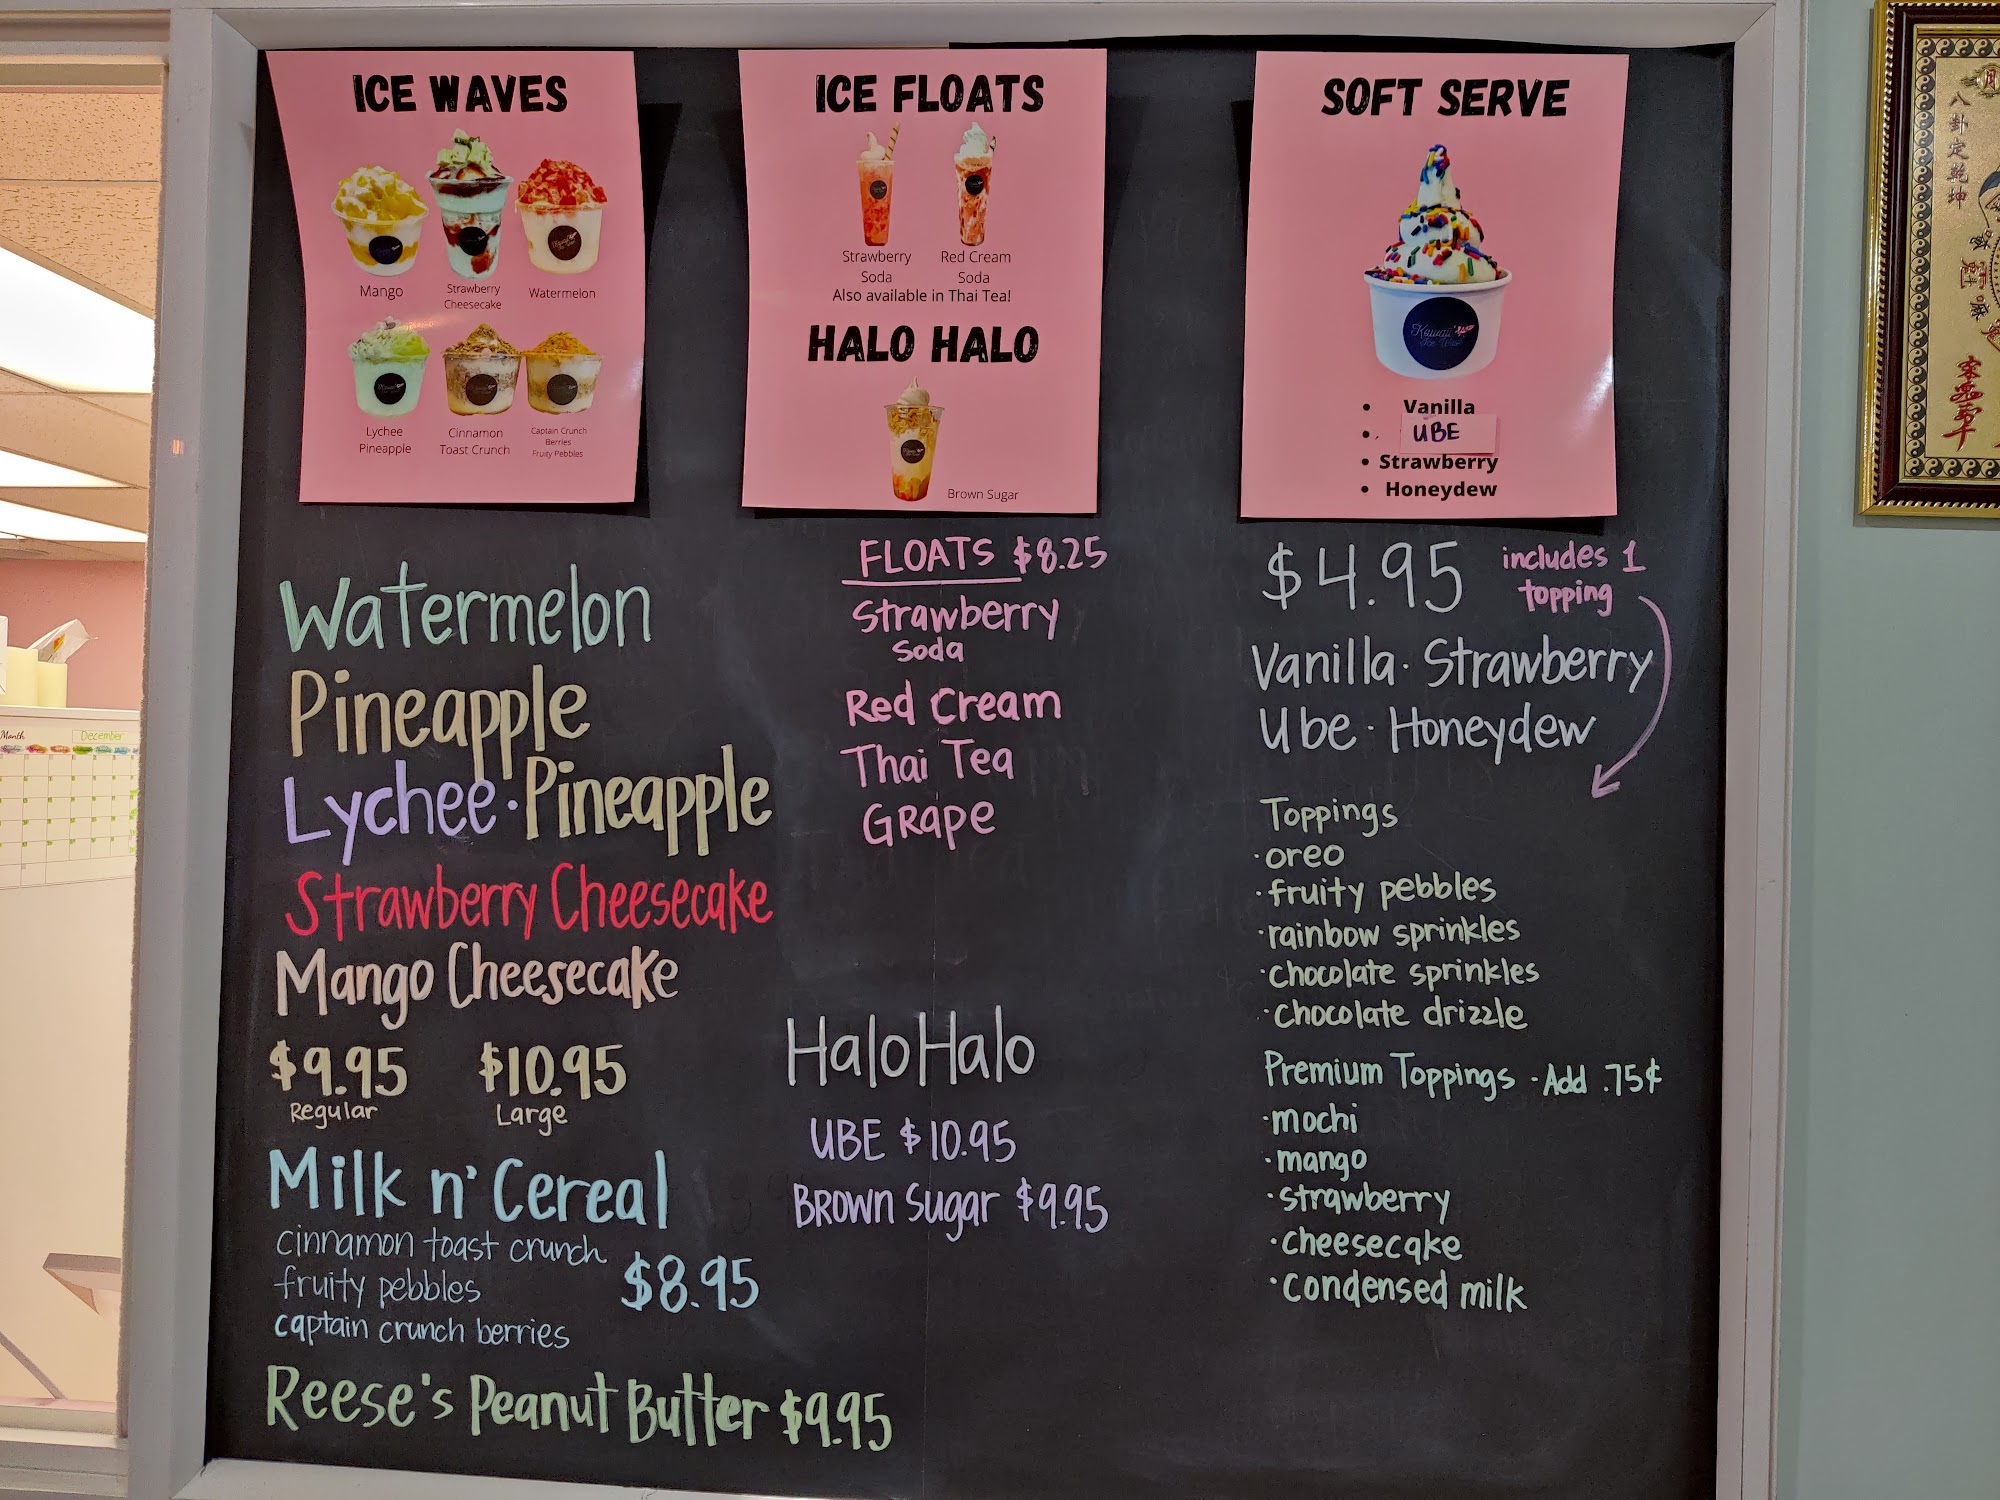 ICE WAVES
Mango
Strawberry
Cheesecake
Watermelon
Lychee
Pineapple
Cinnamon
Toast Crunch
Captain Crunch
Berries
Fruity Pebbles
Watermelon
Pineapple
Lychee·Pineapple
Strawberry Cheesecake
Mango Cheesecake
$9.95 $10.95
Regular Large
Milk n' Cereal
cinnamon toast crunch
fruity pebbles $8.95
captain crunch berries
Reese's Peanut Butter $9.95
ICE FLOATS
Strawberry
Soda
Red Cream
Soda
Also available in Thai Tea!
HALO HALO
Brown Sugar
FLOATS $8.25
Strawberry
Soda
Red Cream
Thai Tea
GRAPE
HaloHalo
UBE $10.95
BROWN Sugar $9.95
SOFT SERVE
Kawaii
Ice Wave
• Vanilla
• UBE
• Strawberry
• Honeydew
$4.95 includes 1
topping
Vanilla · Strawberry
Ube · Honeydew
Toppings
·oreo
·fruity pebbles
·rainbow sprinkles
·chocolate sprinkles
·chocolate drizzle
Premium Toppings - Add .75¢
·mochi
·mango
·strawberry
·cheesecake
·condensed milk
Month December
八卦定乾坤